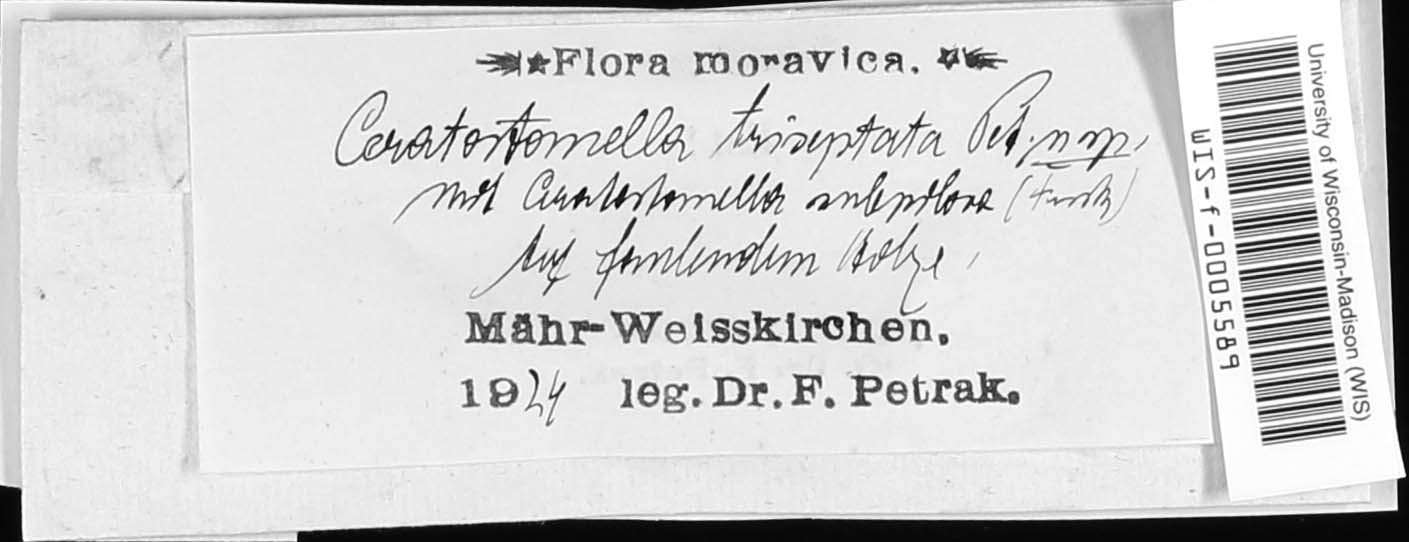 Flora moravica.
Ceratostomella triseptata Pet. n sp.
mit Ceratostomella subpilosa (Fuck)
Auf faulendem Holze.
Mähr-Weisskirchen.
1924 leg. Dr. F. Petrak.
University of Wisconsin-Madison (WIS)
WIS-f-0005589